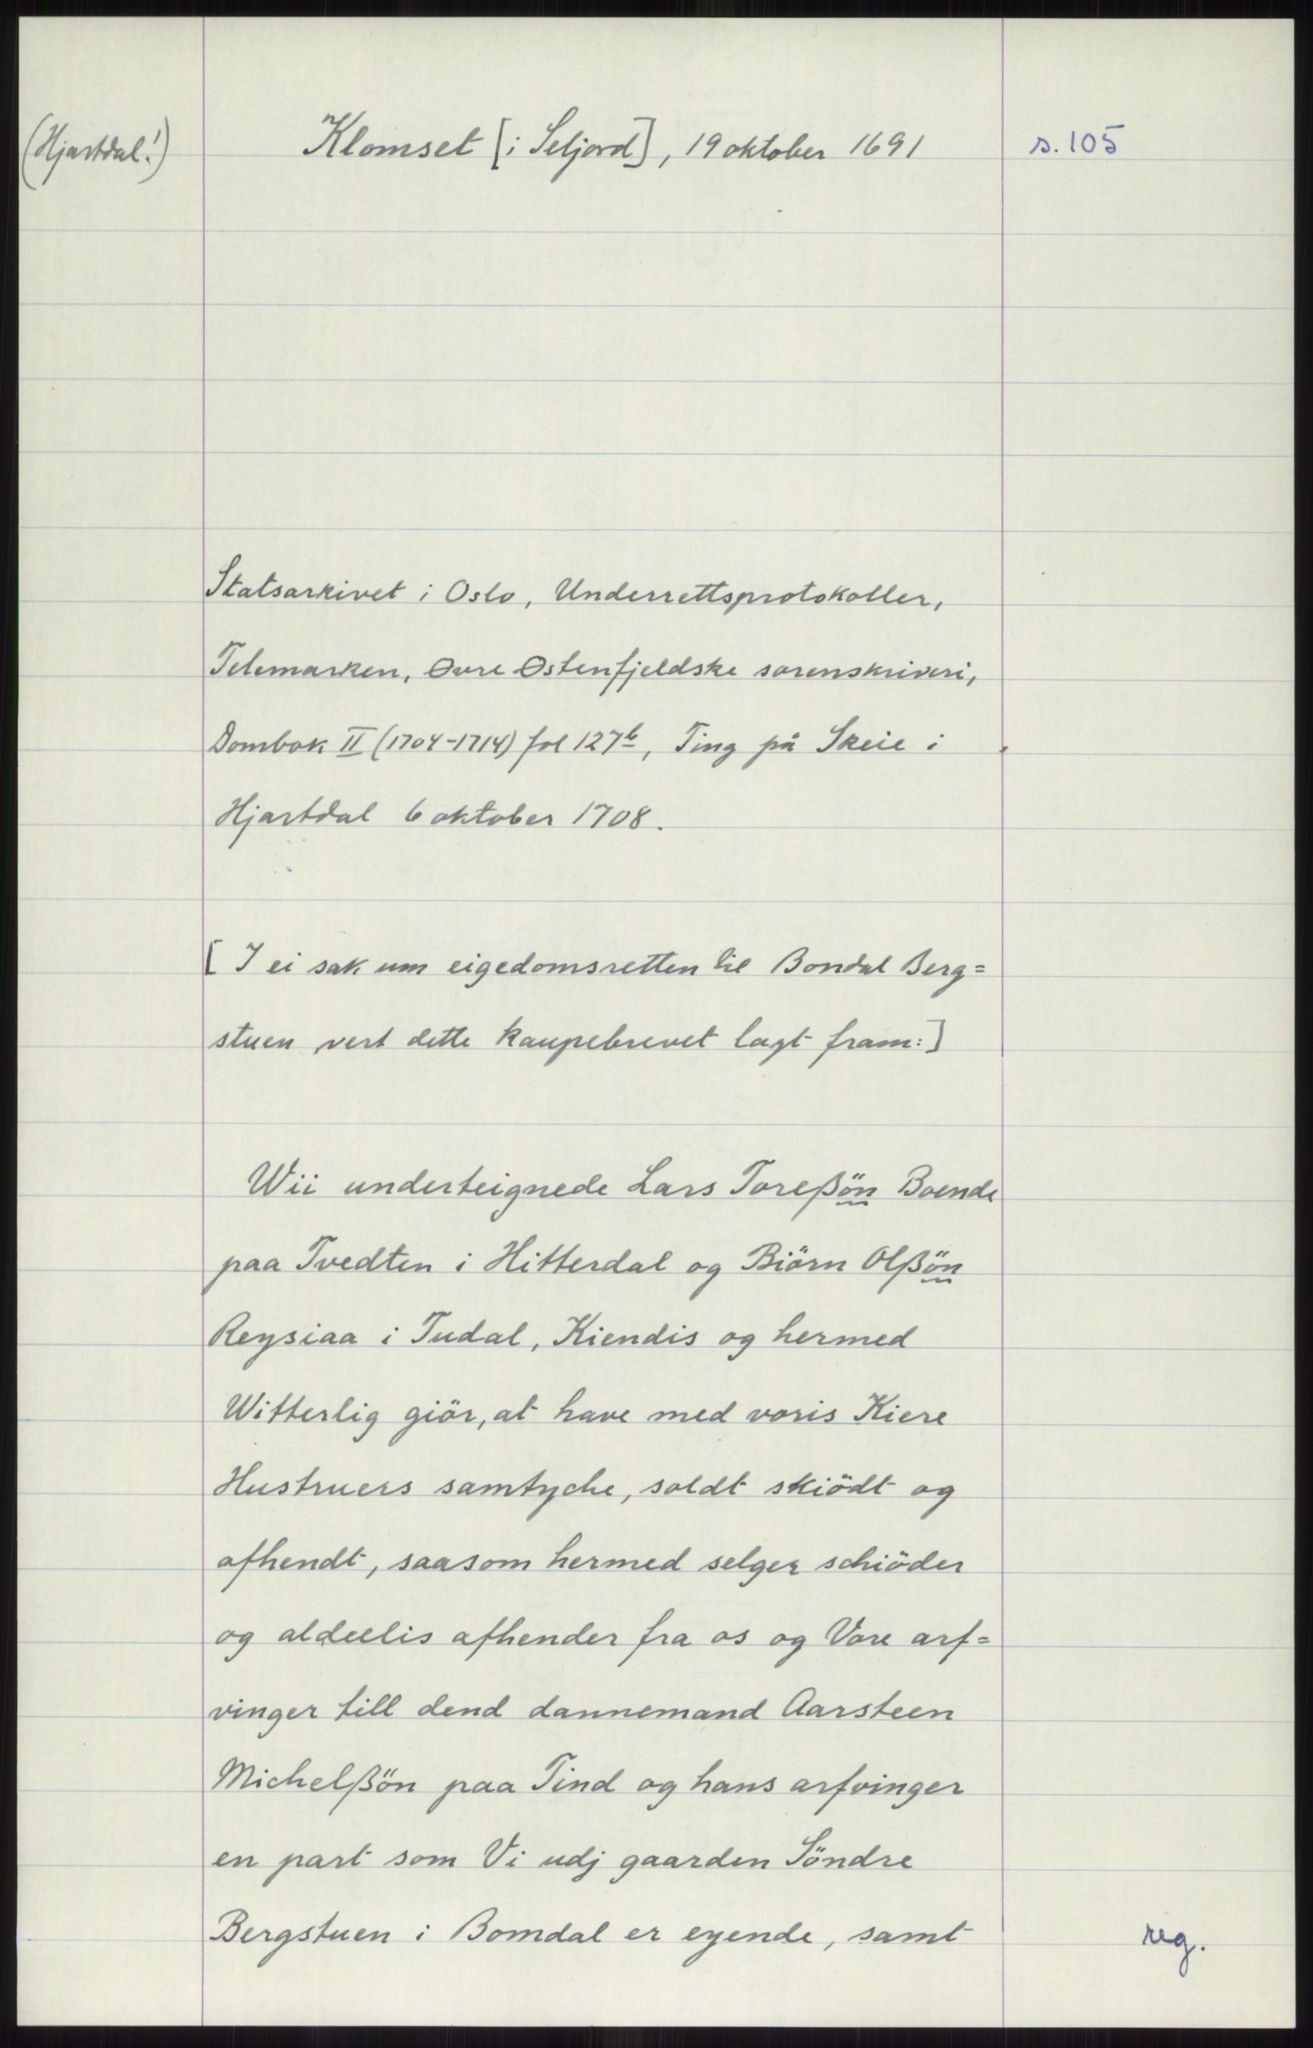 (Hjartdal!) Klomset [i Seljord], 19 oktober 1691 s. 105
Statsarkivet i Oslo, Underrettsprotokoller,
Telemarken, Øvre Østenfjeldske sorenskriveri,
Dombok II (1704-1714) fol 127b, Ting på Skeie i
Hjartdal 6 oktober 1708.
[I ei sak um eigedomsretten til Bondal Berg=
stuen vert dette kaupebrevet lagt fram:]
Wii underteignede Lars Toreßön Boende
paa Tvedten i Hitterdal og Biörn Olßön
Reysiaa i Tudal, Kiendis og hermed
Witterlig giör, at have med voris Kiere
Hustruers samtyche, soldt skiödt og
afhendt, saasom hermed selger schiöder
og aldeelis afhender fra os og Vore arf=
vinger till dend dannemand Aarsteen
Michelßön paa Tind og hans arfvinger
en part som Vi udj gaarden Söndre
Bergstuen i Bomdal er eyende, samt
reg.